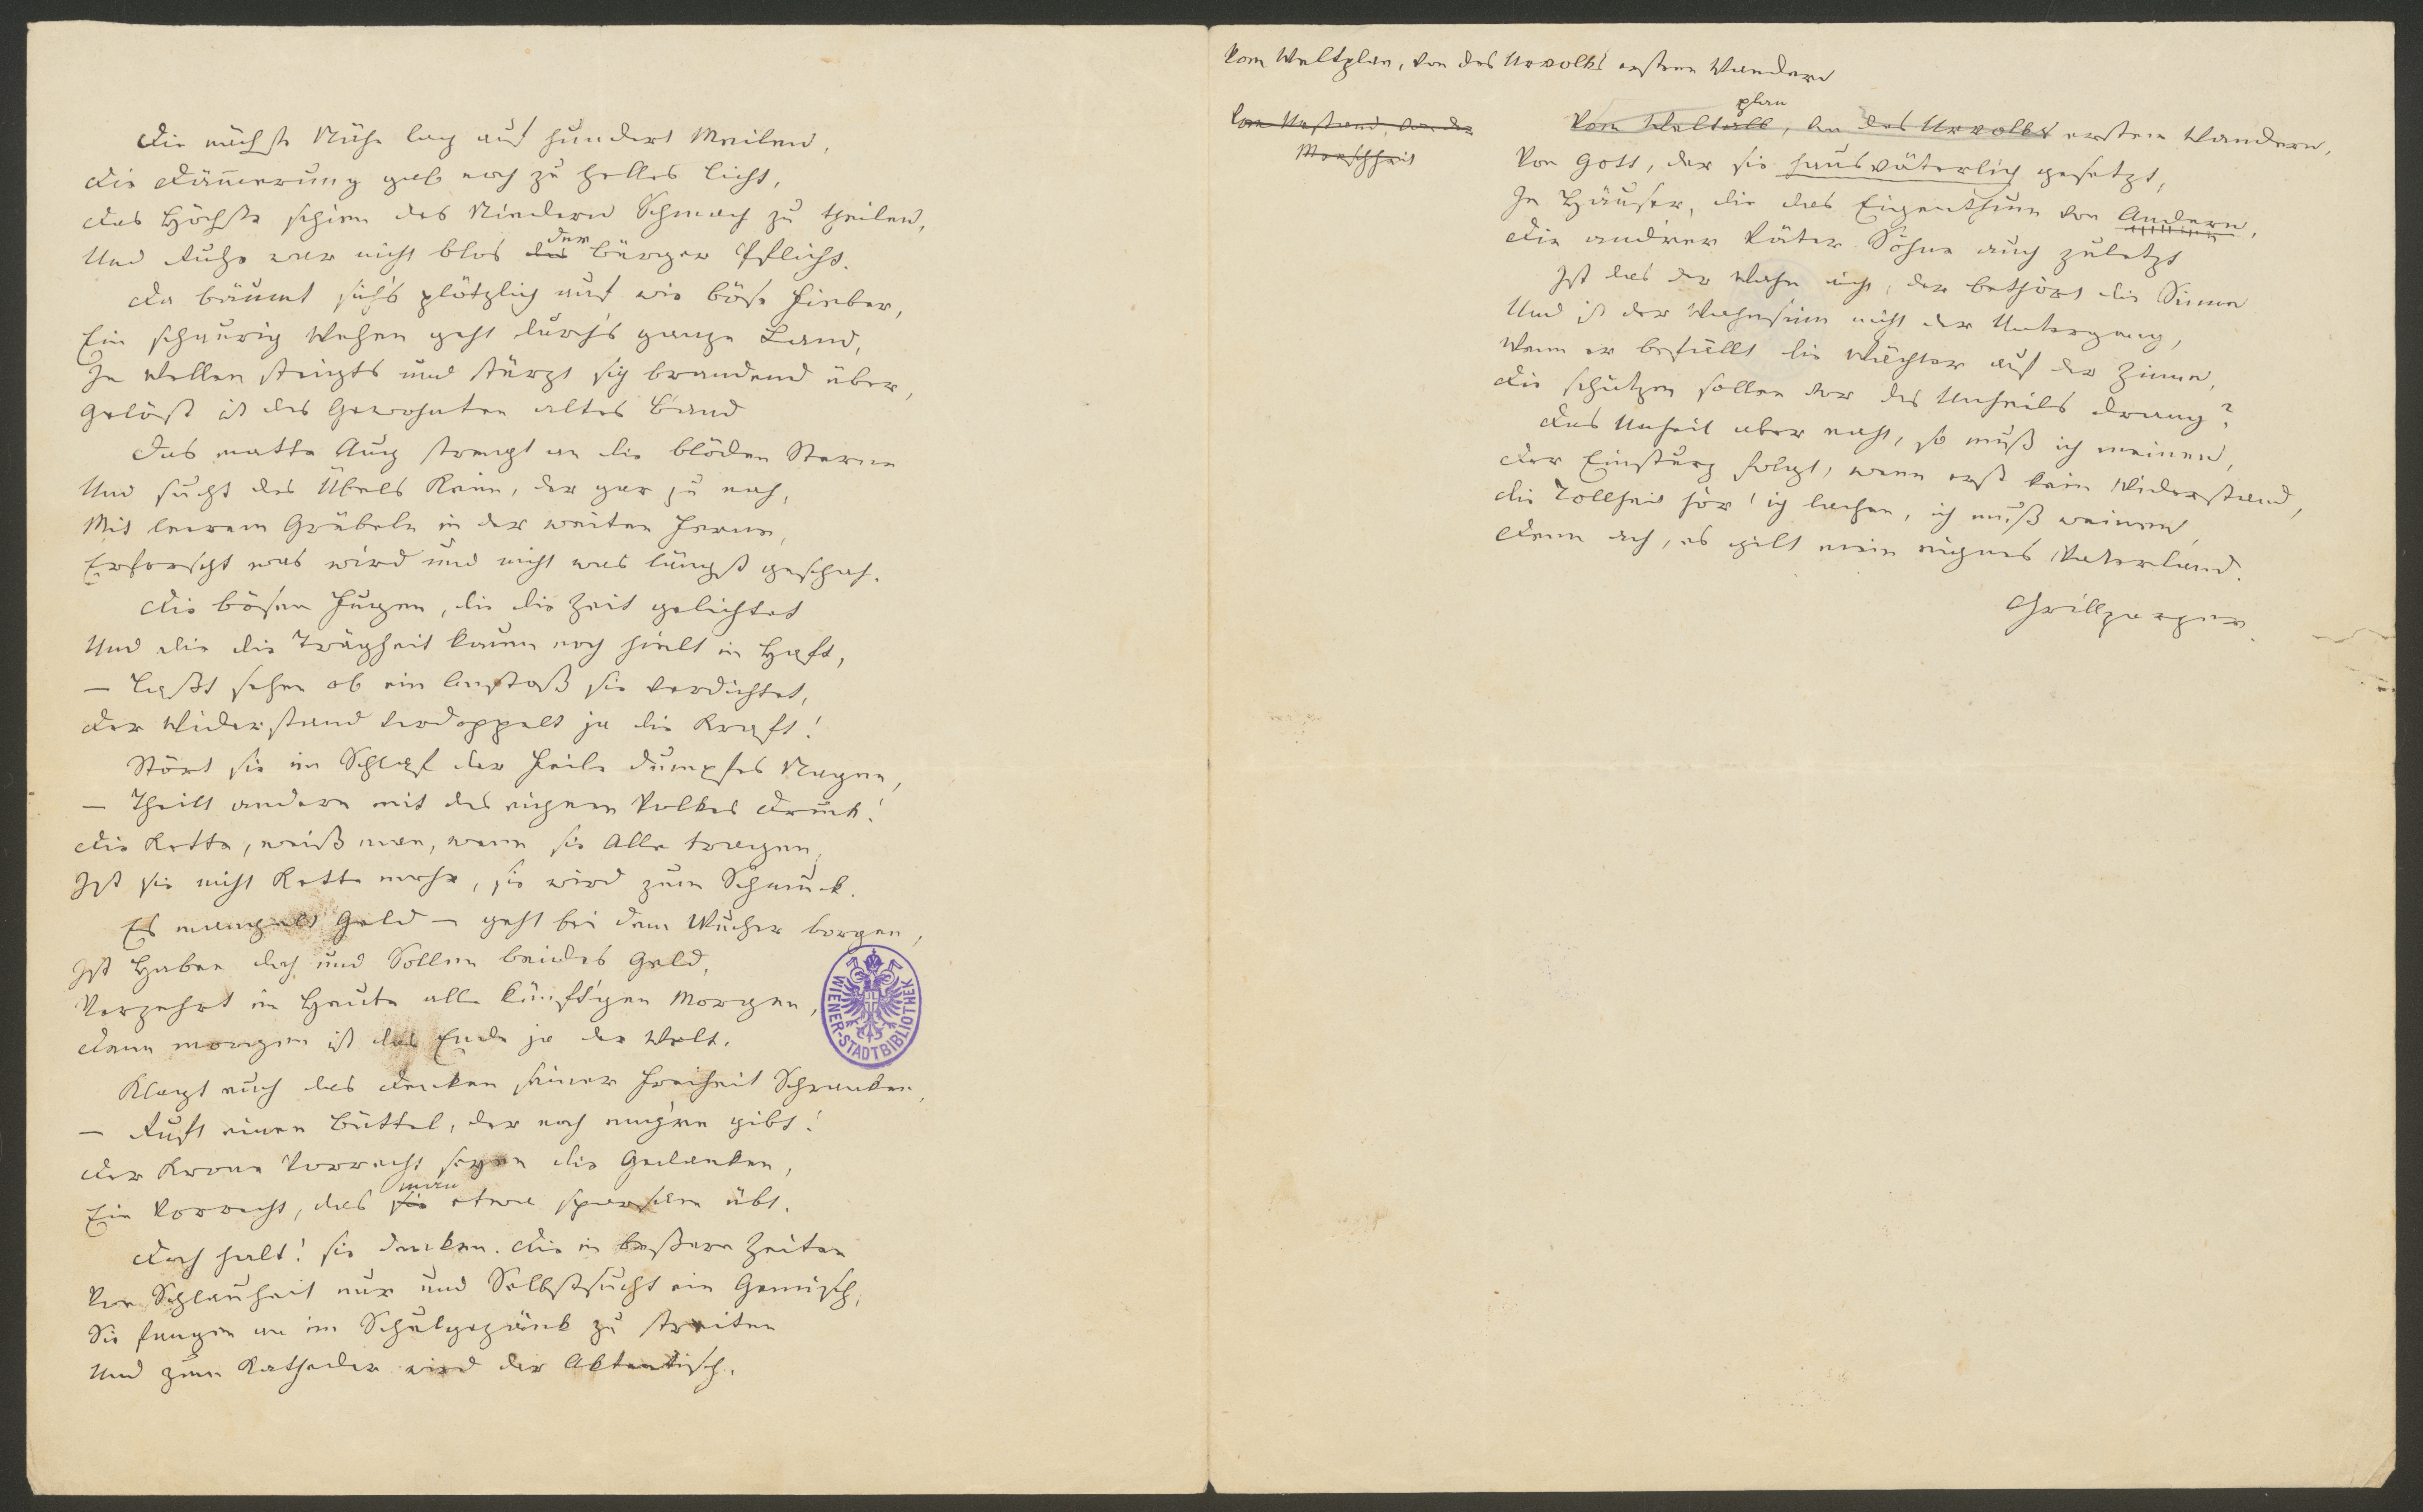 Die nächste Nähe lag auf hundert Meilen,
Die Dämmerung gab noch zu helles Licht,
Das Höchste schien des Niedern Schmach zu theilen,
Und Ruhe war nicht blos des der Bürger Pflicht.
Da bäumt sich's plötzlich auf wie böse Fieber,
Ein schaurig Wehen geht durch's ganze Land,
In Wellen steigts und stürzt sich brandend über,
Gelöst ist des Gewohnten altes Band
Das matte Aug strengt an die blöden Sterne
Und sucht des Übels Keim, der gar zu nah,
Mit leerem Grübeln in der weiten Ferne,
Erforscht was wird und nicht was längst geschah.
Die bösen Fugen, die die Zeit gelichtet
Und die die Trägheit kaum noch hielt in Haft,
— Laßt sehen ob ein Anstoß sie verdichtet,
Der Widerstand verdoppelt ja die Kraft!
Stört sie im Schlaf der Feile dumpfes Nagen,
— Theilt andern mit des eignen Volkes Druck!
Die Kette, weiß man, wenn sie Alle tragen,
Ist sie nicht Kette mehr, sie wird zum Schmuck.
Es mangelt Geld — geht bei dem Wucher borgen,
Ist Haben doch und Sollen beides Geld,
Verzehrt im Heute alle künft'gen Morgen,
Denn morgen ist das Ende ja der Welt.
Klagt euch das Denken seiner Freiheit Schranken,
— Ruft einen Büttel, der noch eng're gibt!
Der Krone Vorrecht seyen die Gedanken,
Ein Vorrecht, das sie man etwa sparsam übt.
Doch halt! sie denken. Die in beßern Zeiten
Von Schlauheit nur und Selbstsucht ein Gemisch,
Sie fangen an im Schulgezänk zu streiten
Und zum Katheder wird der Aktentisch.
WIENER-STADTBIBLIOTHEK
Vom Weltplan, von des Urvolks ersten Wandern
Vom Urstand, von der
Menschheit
plan
Vom Weltall, von des Urvolks ersten Wandern,
Von Gott, der sie hausväterlich gesetzt,
In Häuser, die das Eigenthum von Andern,
Die andrer Väter Söhne auch zuletzt
Ist das der Wahn nicht, der bethört die Sinne
Und ist der Wahnsinn nicht der Untergang,
Wenn er befällt die Wächter auf der Zinne,
Die schützen sollen vor des Unheils Drang?
Das Unheil aber naht, so muß ich meinen,
Der Einsturz folgt, wenn erst kein Widerstand,
Die Tollheit hör' ich lachen, ich muß weinen,
Denn ach, es gilt mein eignes Vaterland.
Grillparzer.